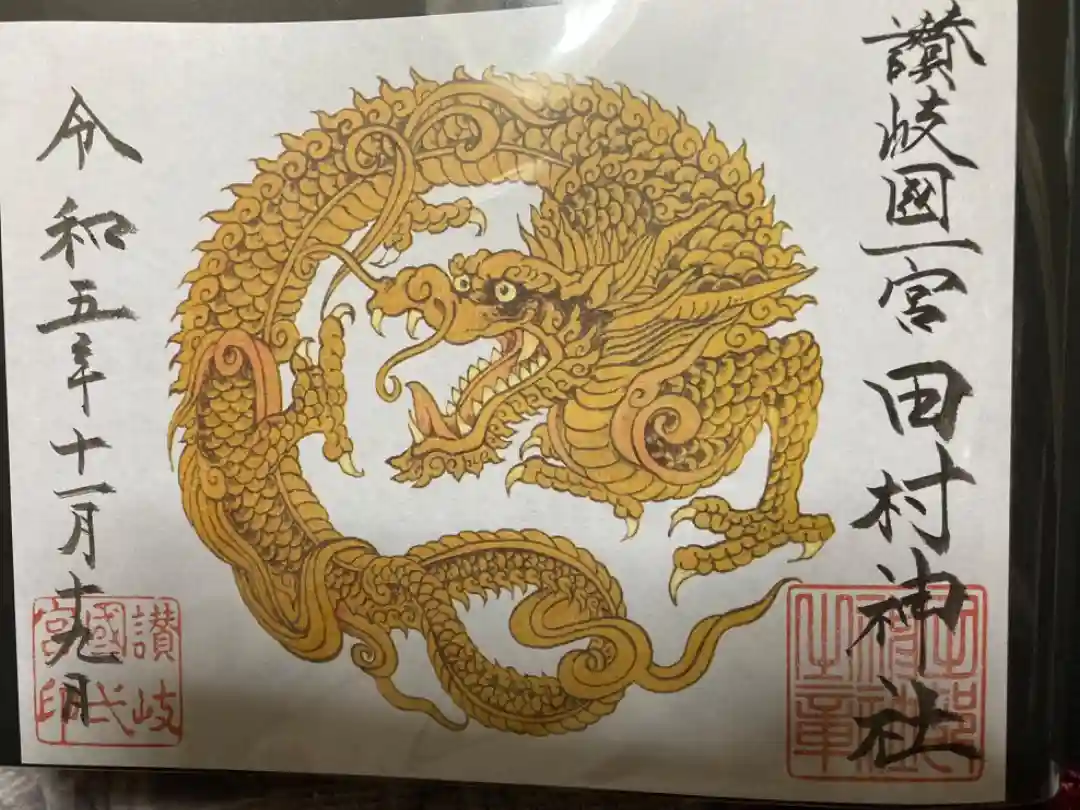 讃岐國一宮 田村神社
令和五年十一月十九日
讃岐
國一
宮印